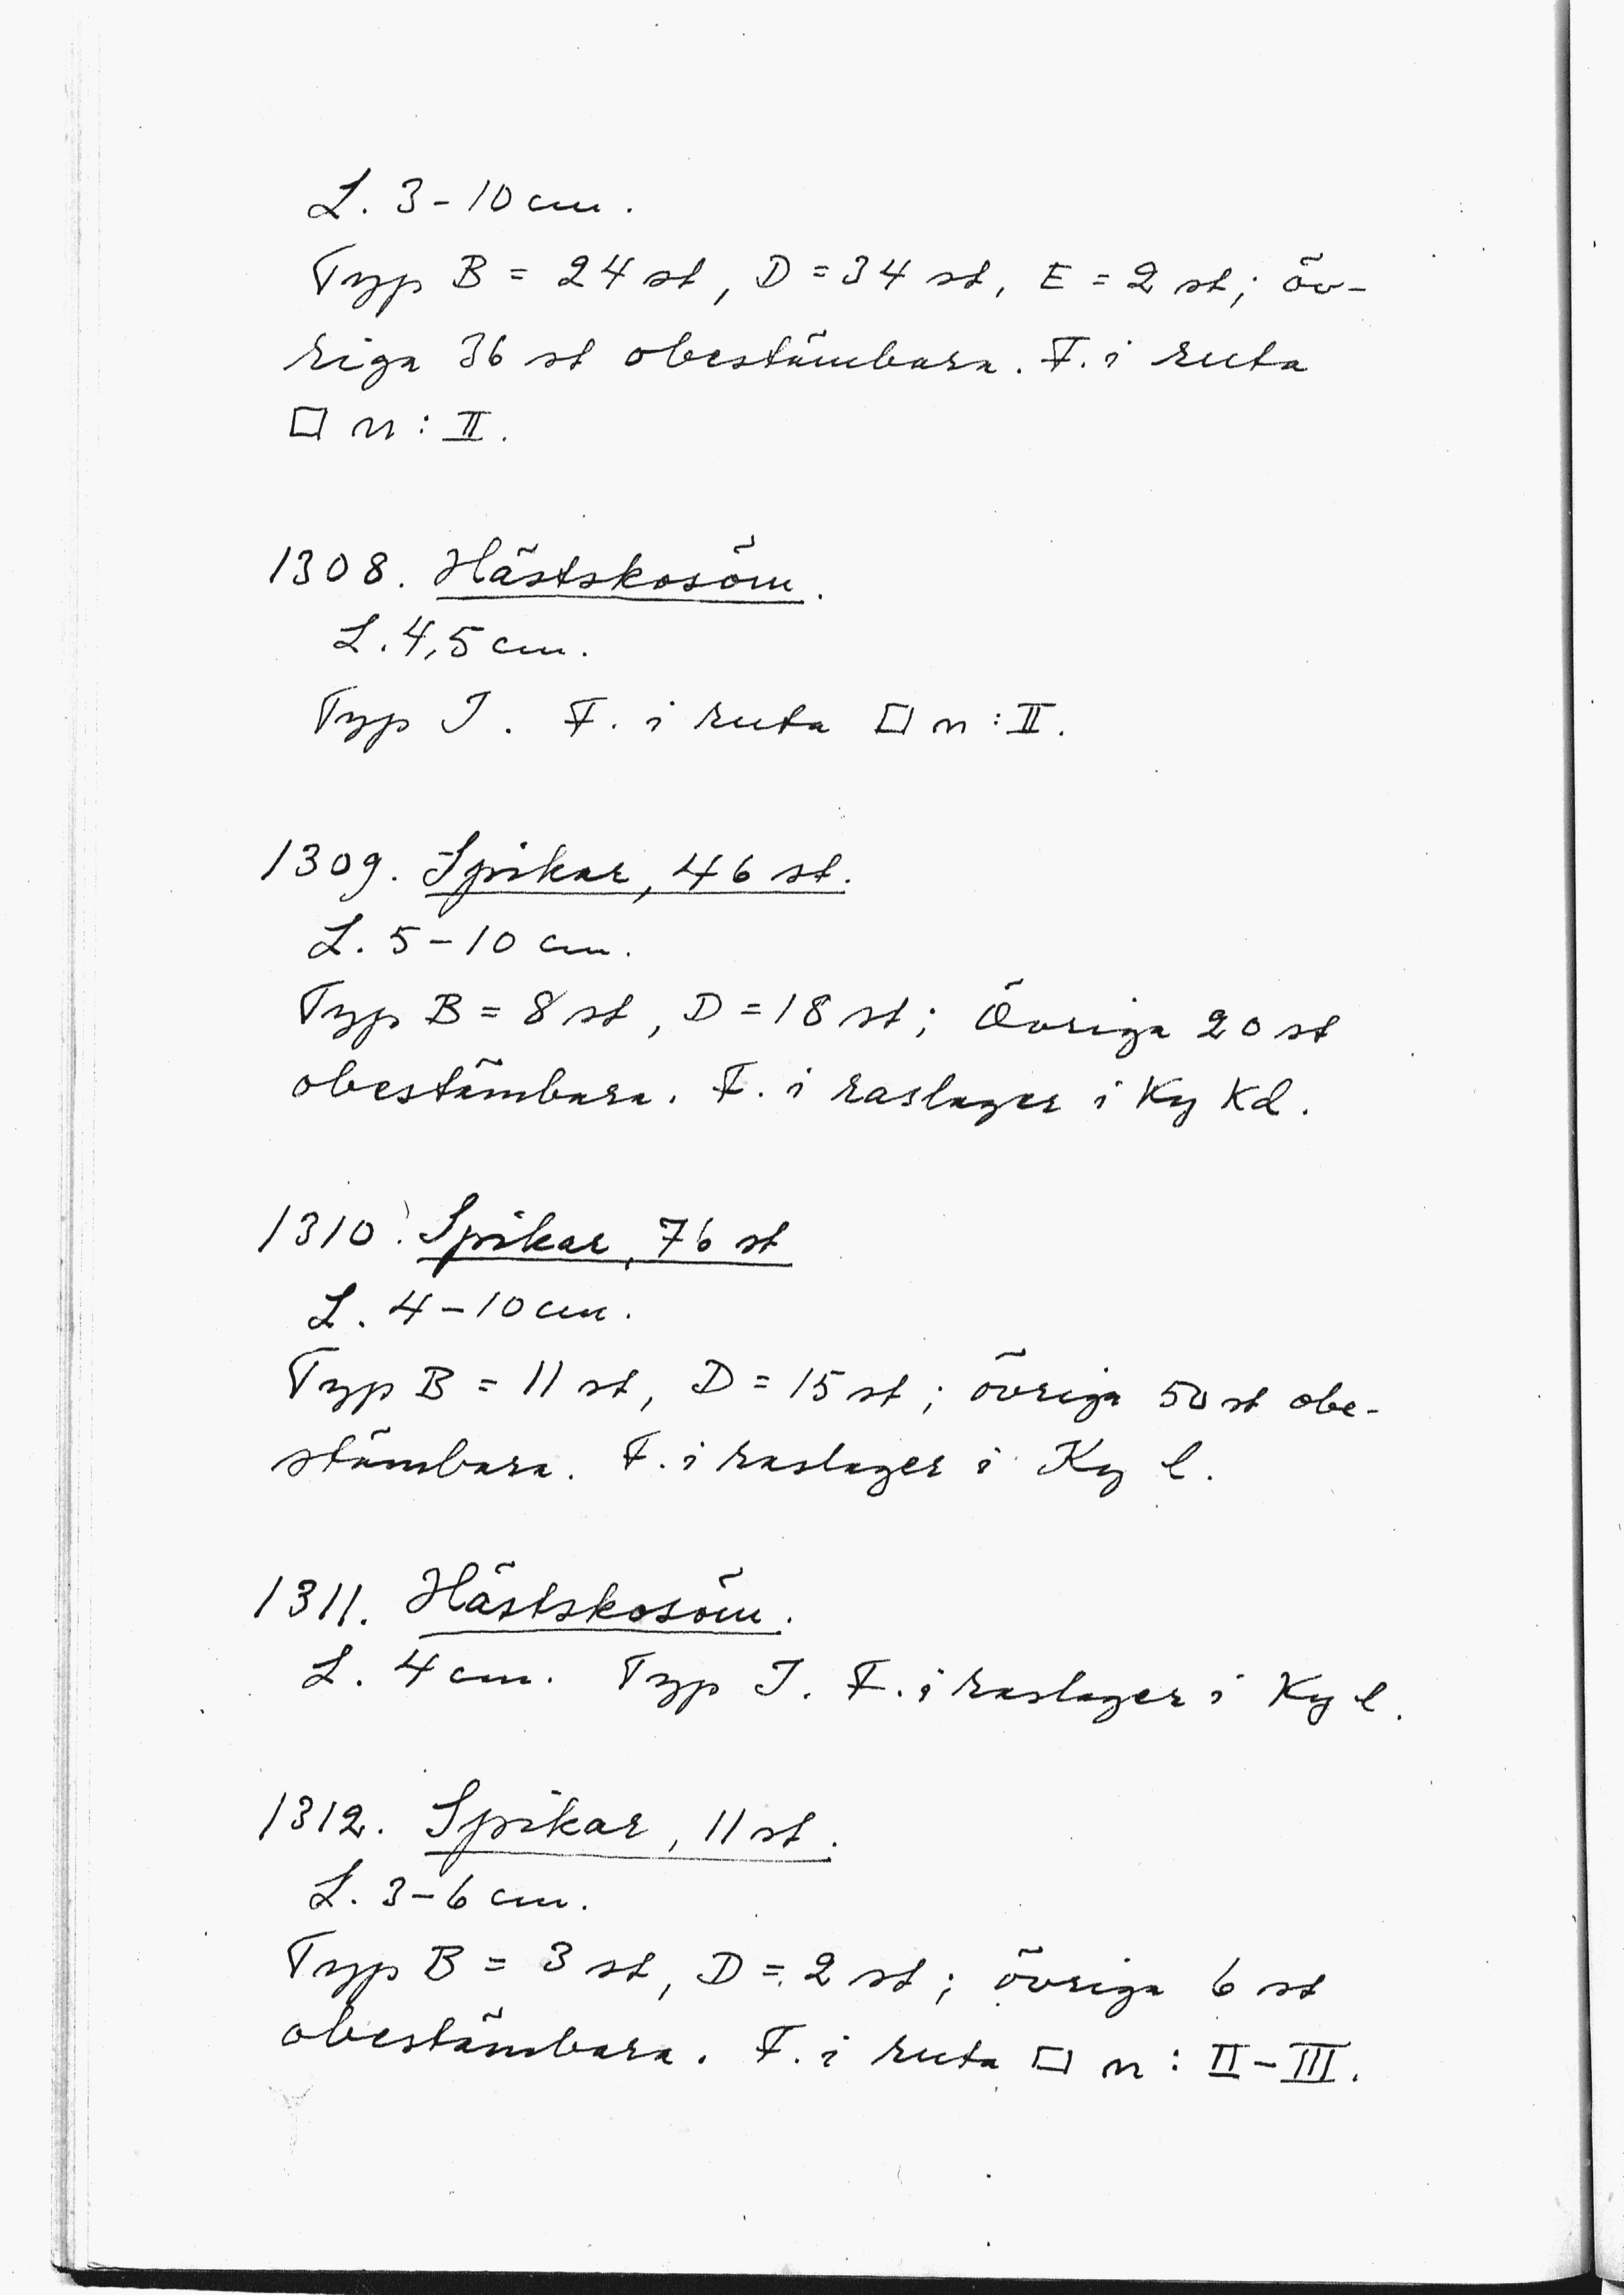 L. 3-10 cm.
Typ B = 24 st, D = 34 st, E = 2 st; öv-
riga 36 st obestämbara. F. i ruta
□ n : II.
1308. Hästskosöm.
L. 4,5 cm.
Typ I. F. i ruta □ n : II.
1309. Spikar, 46 st.
L. 5-10 cm.
Typ B = 8 st, D = 18 st; Övriga 20 st
obestämbara. F. i raslager i Ky Kd.
1310. Spikar, 76 st
L. 4-10 cm.
Typ B = 11 st, D = 15 st; övriga 50 st obe-
stämbara. F. i raslager i Ky l.
1311. Hästskosöm.
L. 4 cm. Typ I. F. i raslager i Ky l.
1312. Spikar, 11 st.
L. 3-6 cm.
Typ B = 3 st, D = 2 st; övriga 6 st
obestämbara. F. i ruta □ n : II-III.